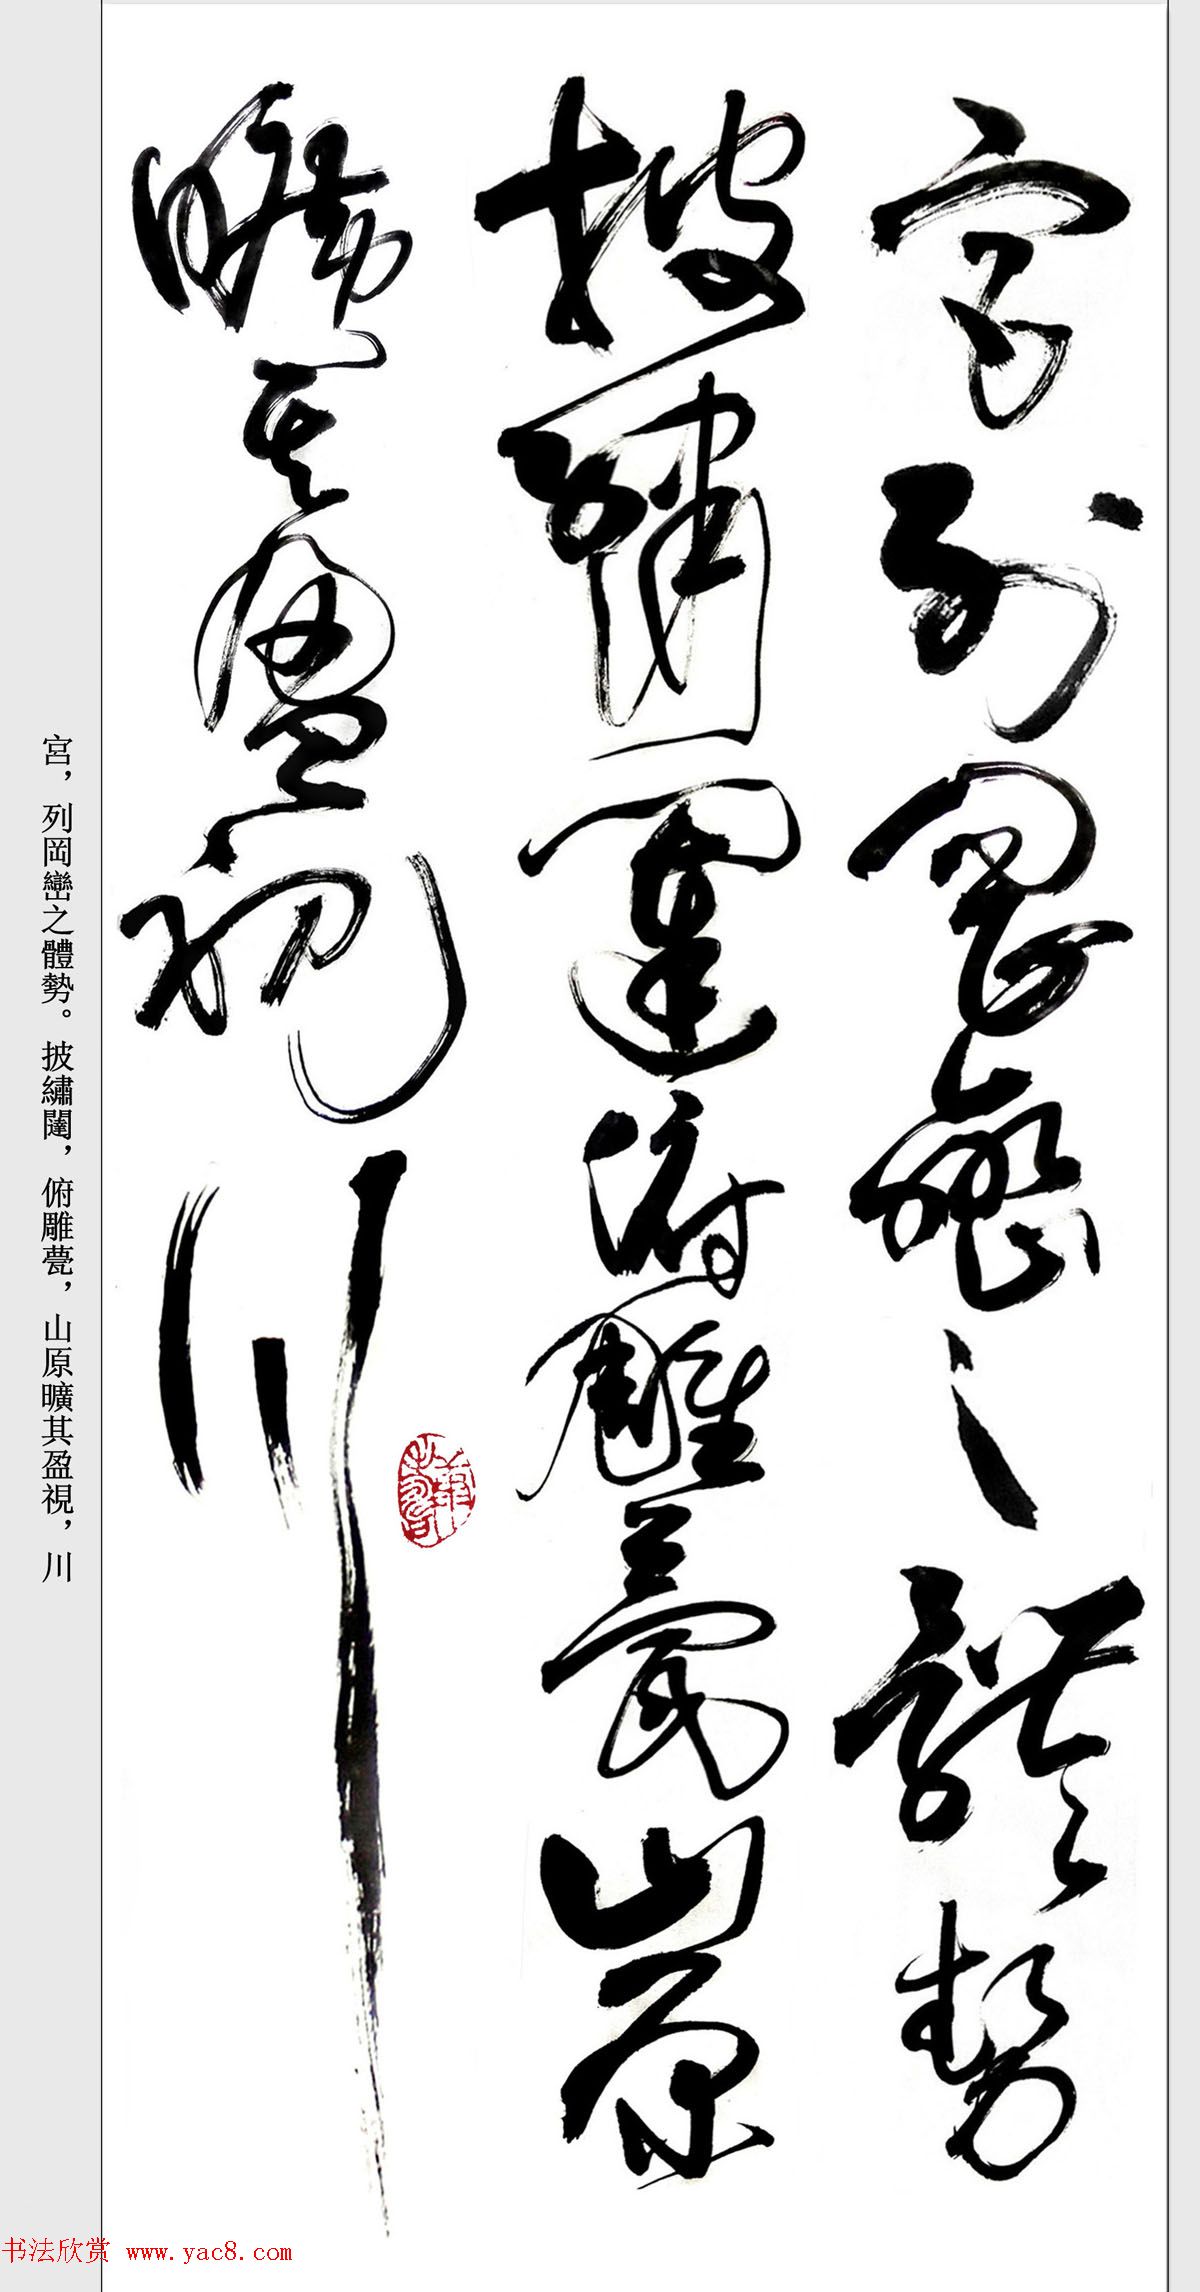 宮列岡巒之體勢
披繡闥俯雕甍山原
曠其盈視川
宮，列岡巒之體勢。披繡闥，俯雕甍，山原曠其盈視，川
书法欣赏 www.yac8.com